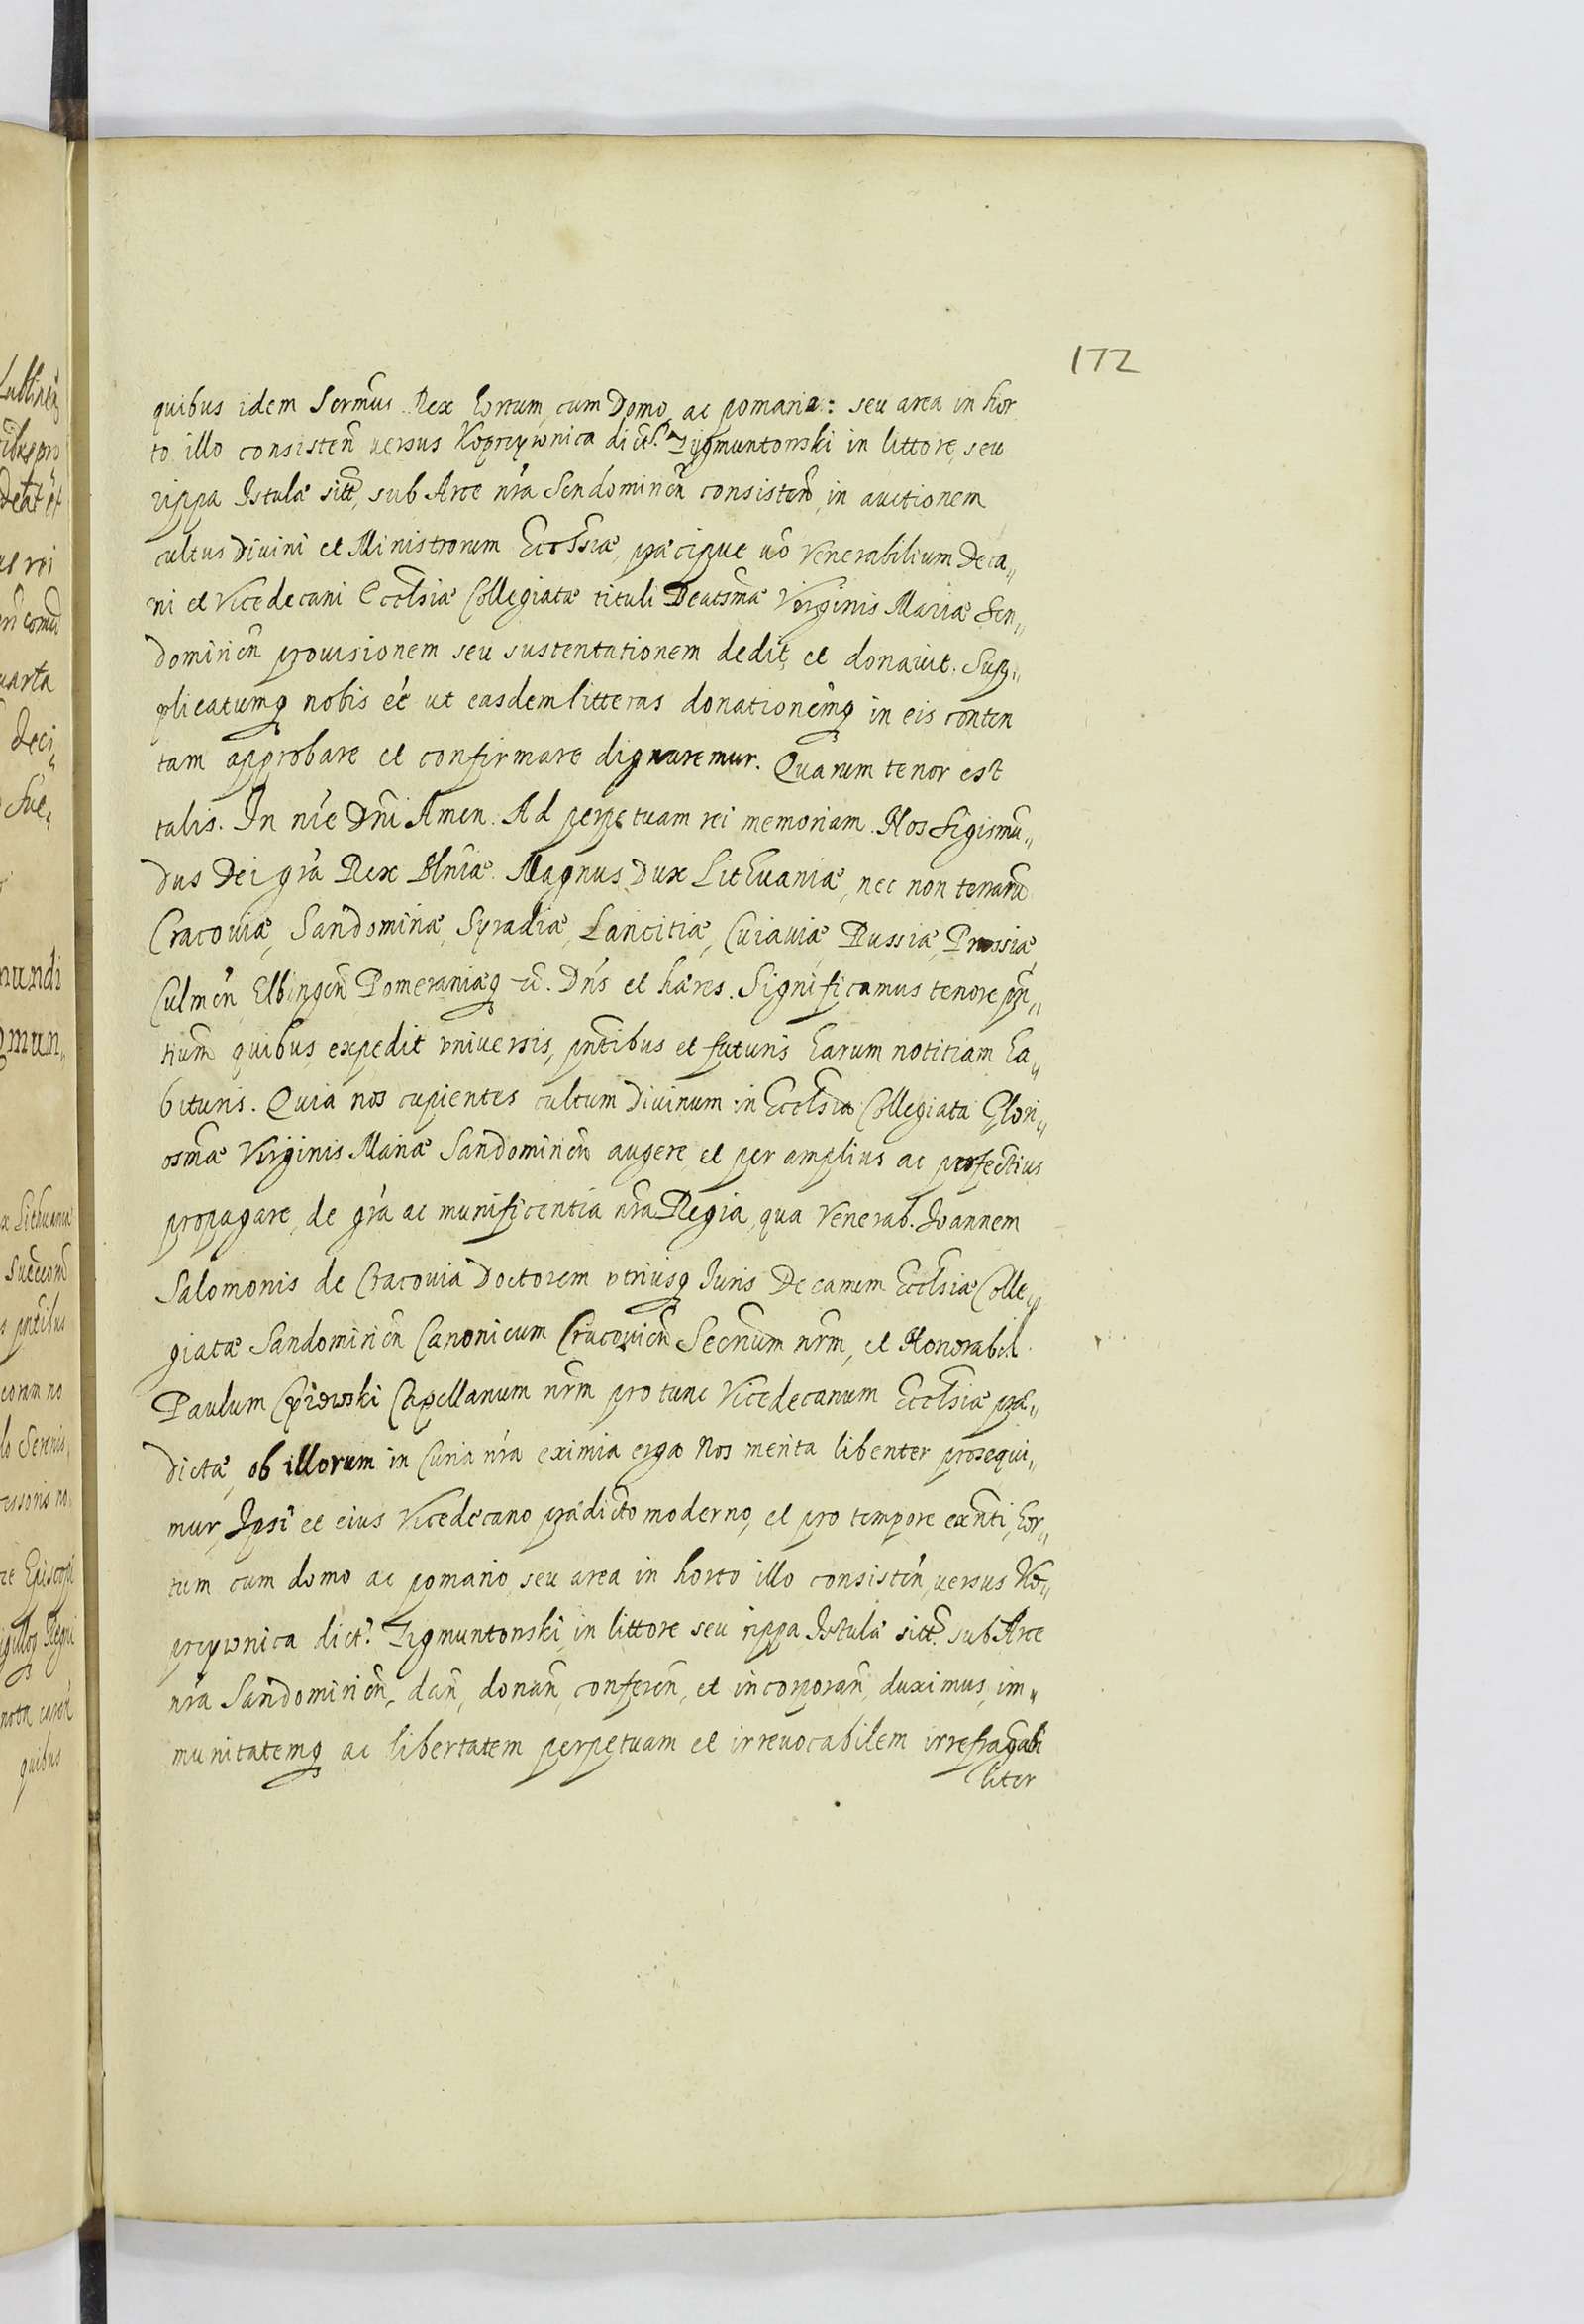 172
quibus idem Sermus Rex hortum cum Domo ac pomaria: seu area in hor
to illo consisten̄ versus Koprzywnica dict. Zygmuntowski in littore, seu
rippa Istulæ sitt, sub Arce nr̄a Sendominen̄ consisten̄, in auctionem
cultus Diuini et Ministrorum Eccl̄siæ, præcipue uō Venerabilium Deca„
ni et Vicedecani Eccl̄siæ Collegiatæ tituli Beatsmæ Virginis Mariæ Sen„
dominien̄ prouisionem seu sustentationem dedit, et donauit. Sup„
plicatumq nobis ēē ut easdem litteras donationēmq in eis conten
tam approbare et confirmare dignaremur. Quarum tenor est
talis. In nīe Dn̄i Amen. Ad perpetuam rei memoriam. Nos Sigismū„
dus Dei gr̄a Rex Pln̄iæ. Magnus Dux Lithuaniæ, nec non terrarū
Cracouiæ, Sandomiriæ, Syradiæ, Lancitiæ, Cuiauiæ, Russiæ, Prussiæ,
Culmen̄, Elbingen̄ Pomeraniæq &c. Dn̄s et hæres. Significamus tenore pn̄„
tium quibus expedit vniuersis, pn̄tibus et futuris harum notitiam ha„
bituris. Quia nos cupientes cultum Diuinum in Eccl̄sia Collegiata Glori„
osmæ Virginis Mariæ Sandomirien̄ augere, et per amplius ac perfectius
propagare, de gr̄a ac munificentia nr̄a Regia, qua Venerab. Ioannem
Salomonis de Cracouia Doctorem vtriusq Iuris Decanum Eccl̄siæ Colle„
giatæ Sandomirien̄ Canonicum Cracouien̄ Secr̄um nr̄m, et Honorabil.
Paulum Capellanum nr̄m pro tunc Vicedecanum Eccl̄siæ præ„
dictæ, ob illorum in Curia nr̄a eximia erga Nos merita libenter prosequi„
mur, Ipsi et eius Vicedecano prædicto moderno, et pro tempore exn̄ti, hor„
tum cum domo ac pomario, seu area in horto illo consisten̄, versus Ko„
przywnica dict. Zigmuntowski, in littore seu rippa Istulæ sitt. sub Arce
nr̄a Sandomirien̄, dan̄, donan̄, conferen̄, et incorporan̄, duximus, im„
munitatemq ac libertatem perpetuam et irreuocabilem irrefragabi
liter